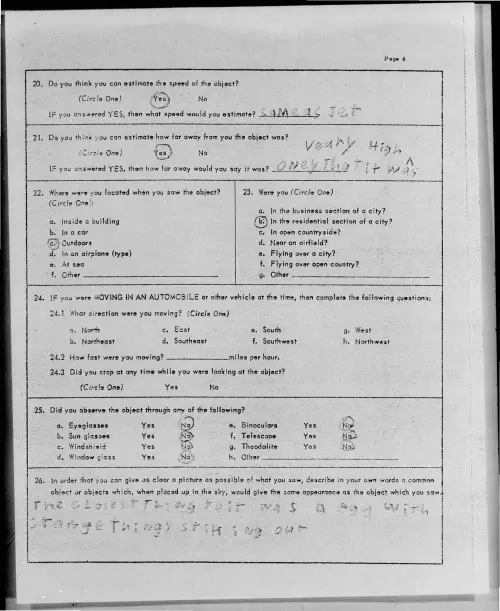 Page 4
20. Do you think you can estimate the speed of the object?
(Circle One) Yes No
IF you answered YES, then what speed would you estimate? SaMe aS Jet
21. Do you think you can estimate how far away from you the object was?
(Circle One) Yes No
Veary High
IF you answered YES, then how far away would you say it was? ONey That It was
22. Where were you located when you saw the object?
(Circle One):
a. Inside a building
b. In a car
c. Outdoors
d. In an airplane (type)
e. At sea
f. Other
23. Were you (Circle One)
a. In the business section of a city?
b. In the residential section of a city?
c. In open countryside?
d. Near an airfield?
e. Flying over a city?
f. Flying over open country?
g. Other
24. IF you were MOVING IN AN AUTOMOBILE or other vehicle at the time, then complete the following questions:
24.1 What direction were you moving? (Circle One)
a. North c. East e. South g. West
b. Northeast d. Southeast f. Southwest h. Northwest
24.2 How fast were you moving? miles per hour.
24.3 Did you stop at any time while you were looking at the object?
(Circle One) Yes No
25. Did you observe the object through any of the following?
a. Eyeglasses Yes No e. Binoculars Yes No
b. Sun glasses Yes No f. Telescope Yes No
c. Windshield Yes No g. Theodolite Yes No
d. Window glass Yes No h. Other
26. In order that you can give as clear a picture as possible of what you saw, describe in your own words a common
object or objects which, when placed up in the sky, would give the same appearance as the object which you saw.
The closest Thing to it was a egg with
stange Things stiking out